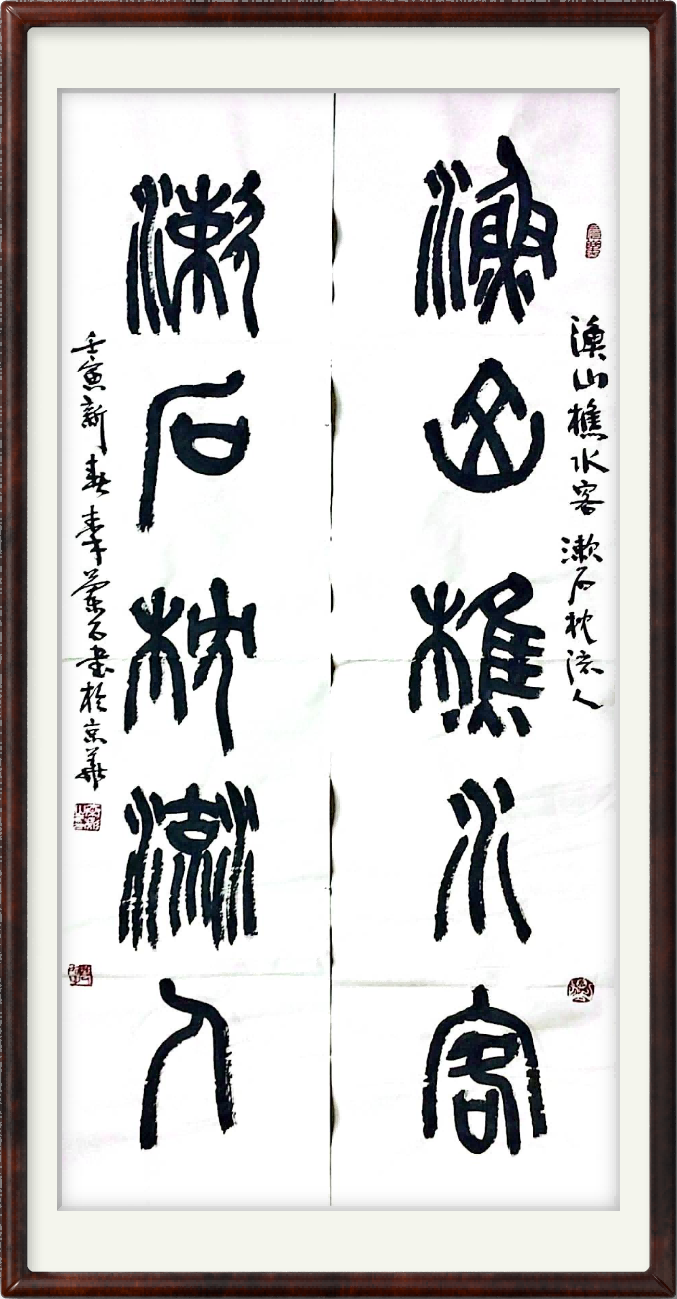 漁山樵水客 漱石枕流人
漁山樵水客
漱石枕流人
壬寅新春秦石書於京華